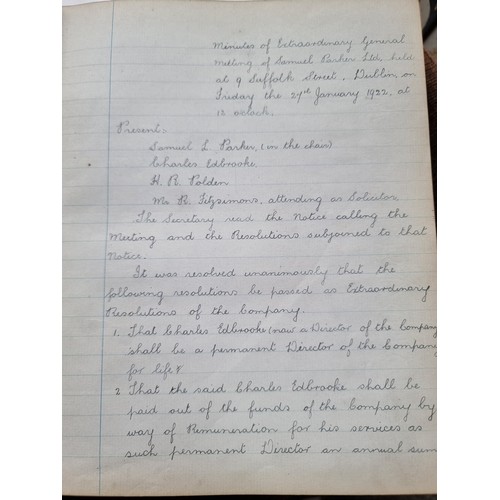 Minutes of Extraordinary General
Meeting of Samuel Parker Ltd, held
at 9 Suffolk Street, Dublin, on
Friday the 27th January 1922, at
12 oclock.
Present:
Samuel L Parker, (in the chair)
Charles Edbrooke.
H. R. Polden
Mr R. Fitzsimons, attending as Solicitor.
The Secretary read the Notice calling the
Meeting and the Resolutions subjoined to that
Notice.
It was resolved unanimously that the
following resolutions be passed as Extraordinary
Resolutions of the Company.
1. That Charles Edbrooke (now a Director of the Company
shall be a permanent Director of the Company
for life
2 That the said Charles Edbrooke shall be
paid out of the funds of the Company by
way of Remuneration for his services as
such permanent Director an annual sum